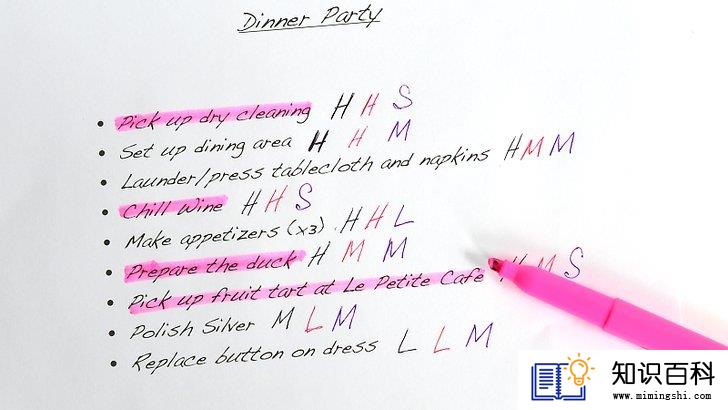 Dinner Party
• Pick up dry cleaning H H S
• Set up dining area H H M
• Launder/press tablecloth and napkins H M M
• Chill Wine H H S
• Make appetizers (x3) H H L
• Prepare the duck H M M
• Pick up fruit tart at Le Petite Cafe H M S
• Polish Silver M L M
• Replace button on dress L L M
知识百科
www.mimingshi.com